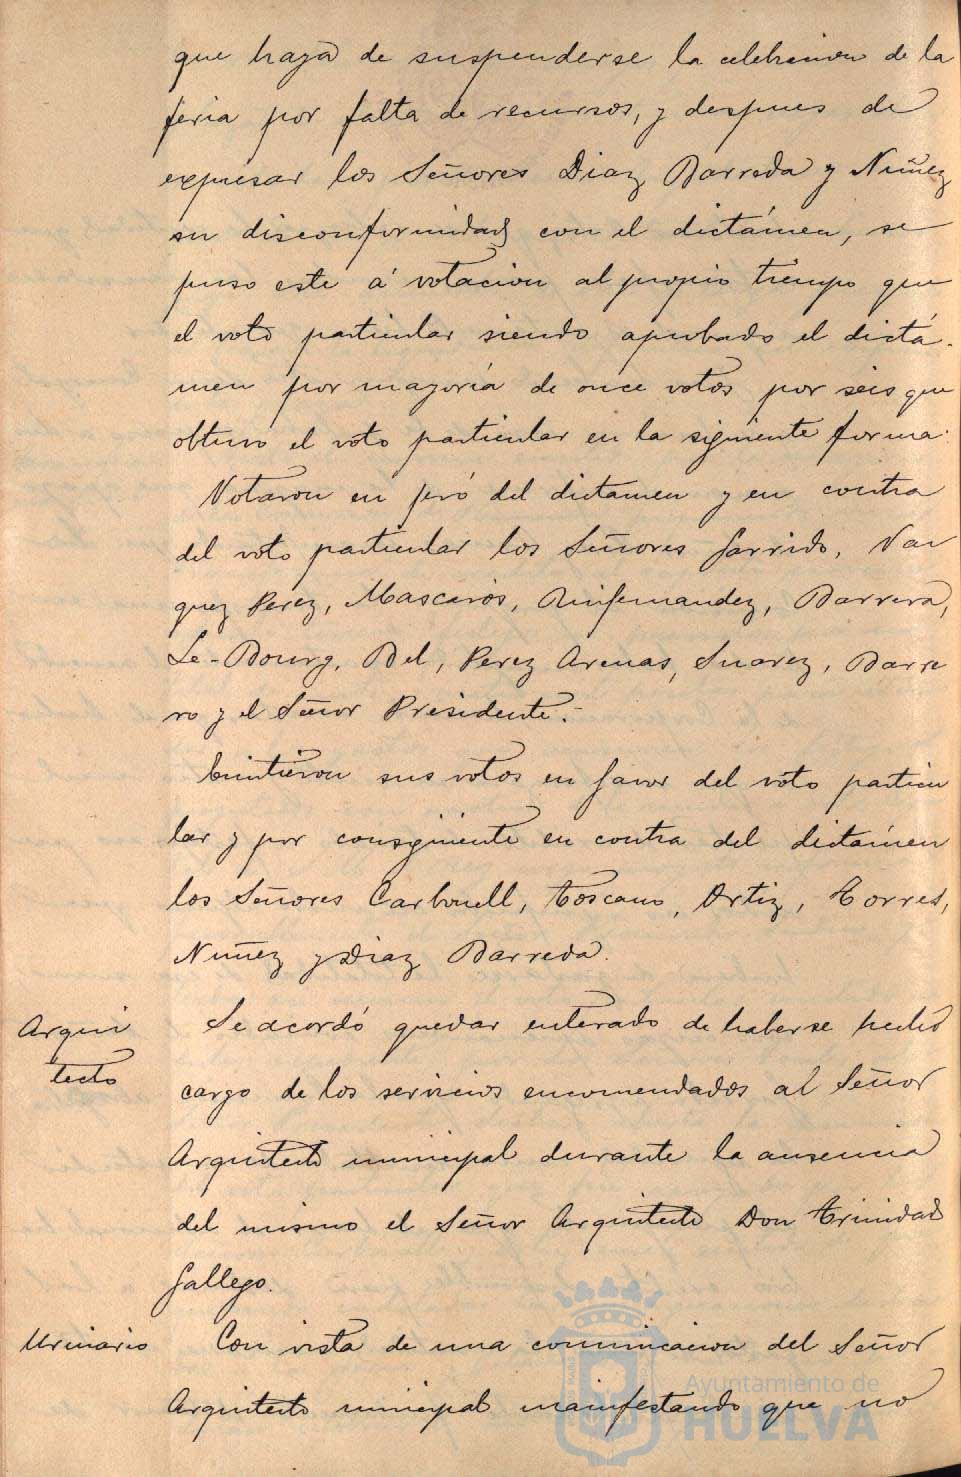 que haya de suspenderse la celebracion de la
feria por falta de recursos, y despues de
expresar los Señores Diaz Barreda y Nuñez
su disconformidad con el dictámen, se
puso este á votacion al propio tiempo que
el voto particular siendo aprobado el dictá-
men por mayoría de once votos por seis que
obtuvo el voto particular en la siguiente forma:
Votaron en pró del dictamen y en contra
del voto particular los Señores Garrido, Vaz
quez Perez, Mascarós, Quifernandez, Barrera,
Le-Bourg, Bel, Perez Arenas, Suarez, Barre
ro y el Señor Presidente.-
Emitieron sus votos en favor del voto particu
lar y por consiguiente en contra del dictámen
los Señores Carbonell, Toscano, Ortiz, Torres,
Nuñez y Diaz Barreda.
Arqui
tecto
Se acordó quedar enterado de haberse hecho
cargo de los servicios encomendados al Señor
Arquitecto municipal durante la ausencia
del mismo el Señor Arquitecto Don Trinidad
Gallego.
Urinario
Con vista de una comunicacion del Señor
Arquitecto municipal manifestando que no
Ayuntamiento de
HUELVA